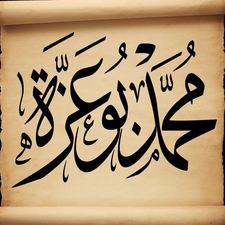 مُحَمَّد بُوعَزَّة